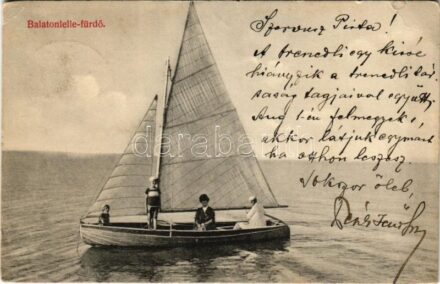 Balatonlelle-fürdő.
Szervusz Pista!
A trenedli egy kissé
hiányzik a trenedli tár
saság tagjaival együtt.
Aug 1-én felmegyek,
akkor látjuk egymást
ha otthon leszesz.
Sokszor ölel,
darabanth